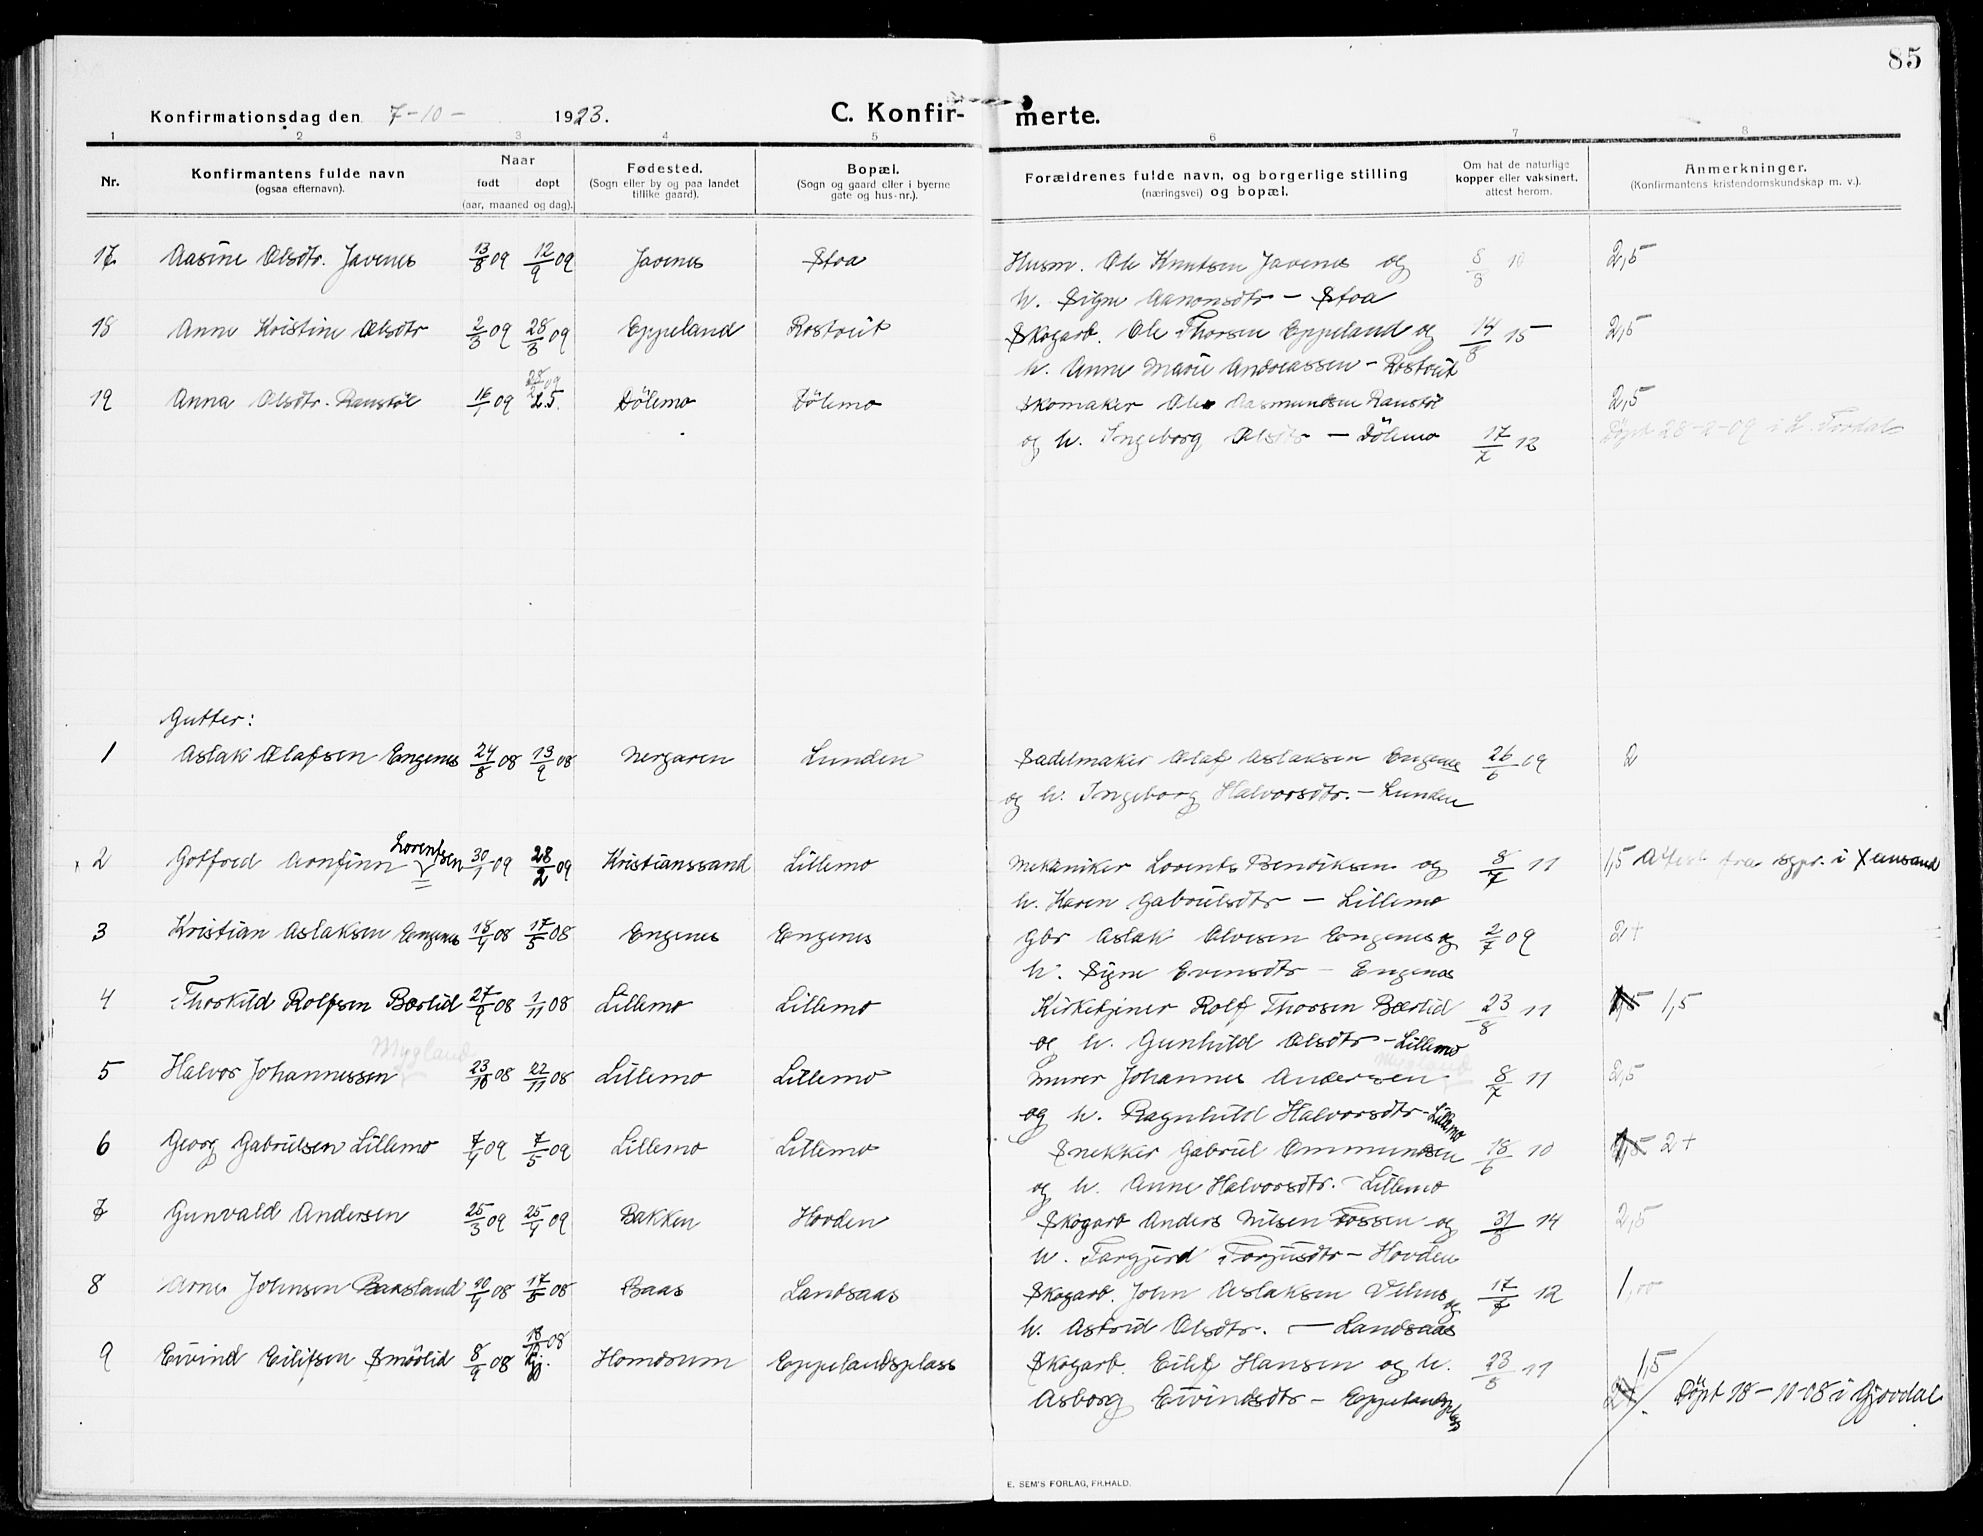 85
Konfirmationsdag den 7-10- 1923.
C. Konfir- merte.
1 2 3 4 5 6 7 8
Nr. Konfirmantens fulde navn (ogsaa efternavn). Naar født døpt (aar, maaned og dag). Fødested. (Sogn eller by og paa landet tillike gaard). Bopæl. (Sogn og gaard eller i byerne gate og hus-nr.). Forældrenes fulde navn, og borgerlige stilling (næringsvei) og bopæl. Om hat de naturlige kopper eller vaksinert, attest herom. Anmerkninger. (Konfirmantens kristendomskundskap m. v.).
17 Aasine Olsdtr. Javenes 13/8 09 12/9 09 Javenes Stoa Husm. Ole Knutsen Javenes og 8/8 10 2,5
h. Signe Aanonsdtr - Stoa
18 Anne Kristine Olsdtr 2/3 09 28/3 09 Eppeland Rostvit Skogarb. Ole Thorsen Eppeland og 14/8 15 2,5
h. Anne Marie Andreassen - Rostvit
19 Anna Olsdtr. Ranstøl 16/1 09 28/2 09 Dölemo Dölemo Skomaker Ole Aasmundsen Ranstöl 2,5
og h. Ingeborg Olsdtr - Dölemo 17/7 12 Döpt 28-2-09 i
Gutter:
1 Aslak Olafsen Engenes 24/8 08 13/9 08 Nergaren Lunden Sadelmaker Olaf Aslaksen Engenes 26/6 09 2
og h. Ingeborg Halvorsdtr. - Lunden
2 Gotfred Arnfinn Lorentsen 30/1 09 28/2 09 Kristianssand Lillemo Mekaniker Lorents Bendiksen og 8/7 11 1,5 Attest fra sgpr. i Xansand
h. Karen Gabrielsdtr - Lillemo
3 Kristian Aslaksen Engenes 18/4 08 17/5 08 Engenes Engenes Gbr Aslak Olvesen Engenes og 2/7 09 2+
h. Signe Evensdtr - Engenes
4 Thorkild Rolfsen Bærlid 27/9 08 1/11 08 Lillemo Lillemo Kirketjener Rolf Thorsen Bærlid 23/8 11 1,5
og h. Gunhild Olsdtr - Lillemo
5 Halvor Johannessen Mygland 23/10 08 22/11 08 Lillemo Lillemo Murer Johannes Andersen Mygland 8/7 11 2,5
og h. Ragnhild Halvorsdtr - Lillemo
6 Georg Gabrielsen Lillemo 7/4 09 7/5 09 Lillemo Lillemo Snekker Gabriel Ommundsen 18/6 10 2+
og h. Anne Halvorsdtr. - Lillemo
7 Gunvald Andersen 25/3 09 25/4 09 Bakken Hovden Skogarb Anders Nilsen Fossen og 31/8 14 2,5
h. Targjerd Torjusdtr - Hovden
8 Arne Johnsen Baasland 10/4 08 17/5 08 Baas Landsaas Skogarb. John Aslaksen Velnes og 17/7 12 1,00
h. Astrid Olsdtr. - Landsaas
9 Eivind Eilifsen Smölid 8/9 08 18/10 08 Homdrum Eppelandsplass Skogarb. Eilif Hansen og h. 23/8 11 1,5
Asborg Eivindsdtr - Eppelandsplass Döpt 18-10-08 i Gjövdal
E. SEM'S FORLAG, FR.HALD.